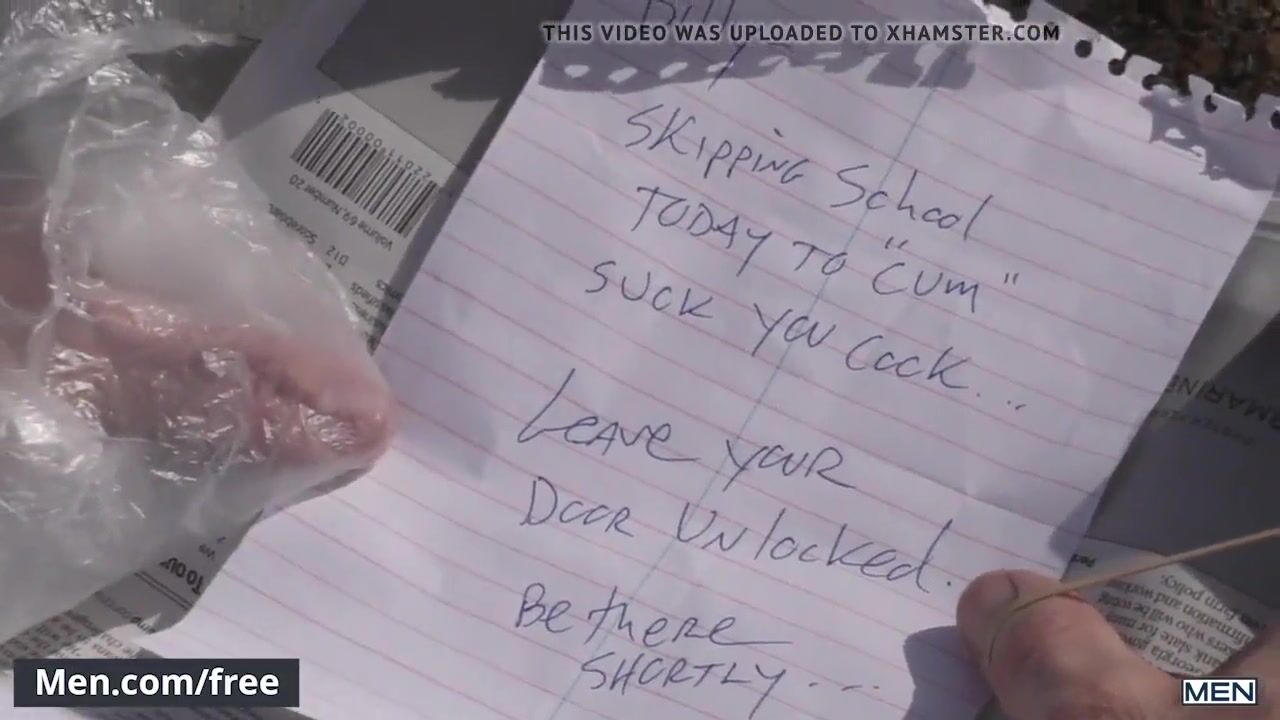 THIS VIDEO WAS UPLOADED TO XHAMSTER.COM
Bill
Skipping School
TODAY TO "CUM"
SUCK YOU COCK...
LEAVE YOUR
DOOR UNlocked.
Be there
SHORTLY...
2201100002
Volume 69, Number 20
D12
Men.com/free
MEN